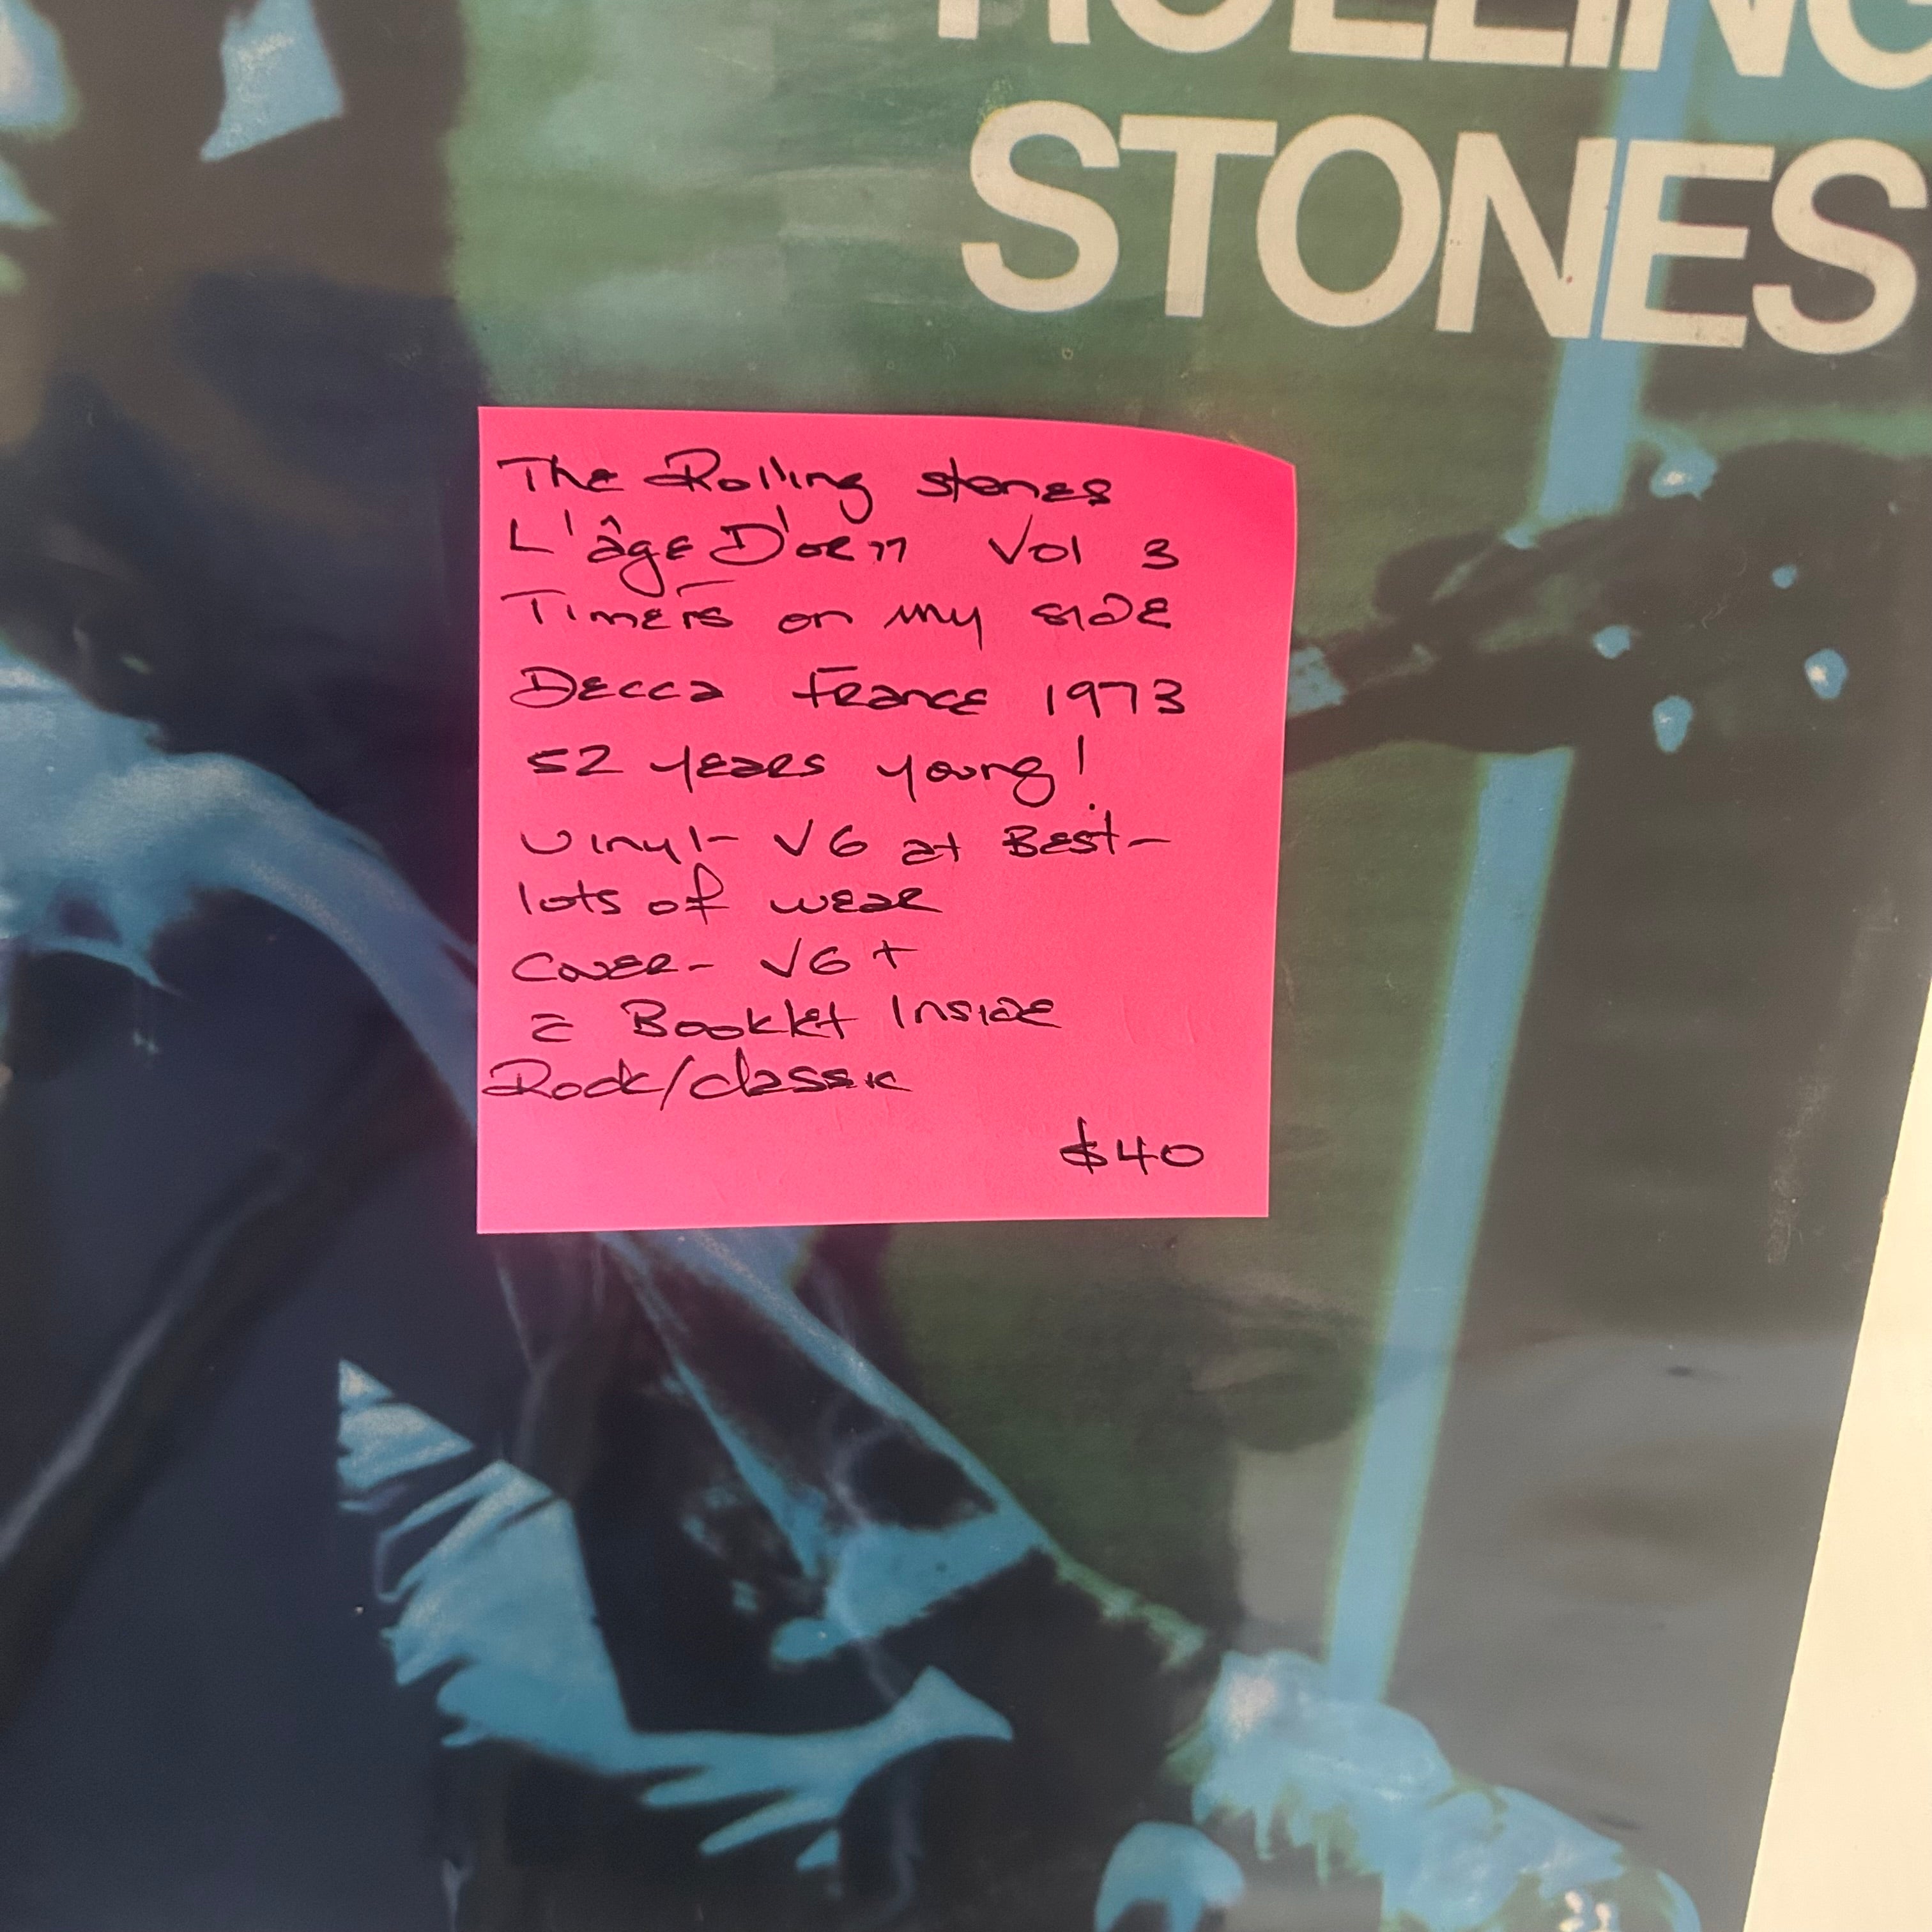 ROLLING
STONES
The Rolling Stones
L'âge D'or 77 Vol 3
Time is on my side
Decca France 1973
52 years young!
Vinyl- VG at Best-
lots of wear
Cover- VG+
c̄ Booklet Inside
Rock/classic
$40